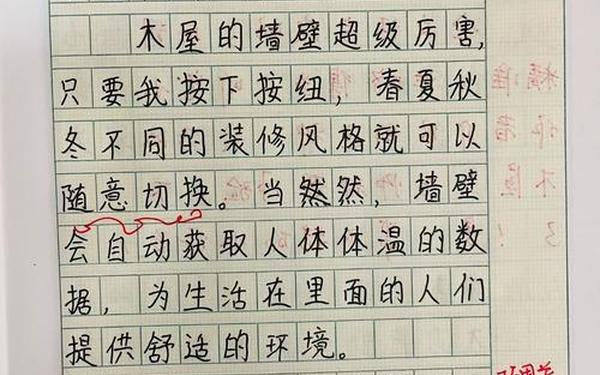 木屋的墙壁超级厉害,
只要我按下按纽，春夏秋
冬不同的装修风格就可以
随意切换。当然然，墙壁
会自动获取人体体温的数
据，为生活在里面的人们
提供舒适的环境。